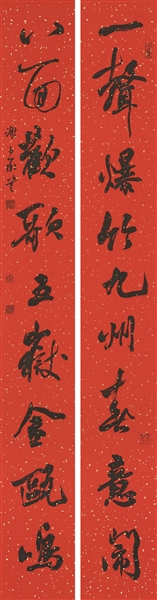 一聲爆竹九州春意鬧
八面歡歌五嶽金甌鳴